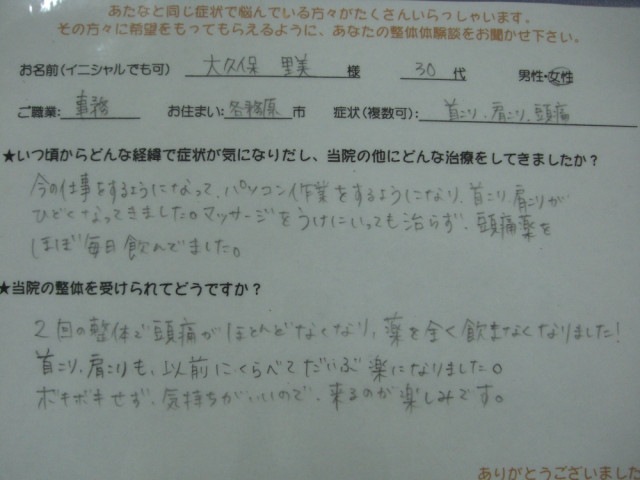 あなたと同じ症状で悩んでいる方々がたくさんいらっしゃいます。
その方々に希望をもってもらえるように、あなたの整体体験談をお聞かせ下さい。
お名前(イニシャルでも可) 大久保 里美 様 30 代 男性・女性
ご職業: 事務 お住まい: 各務原 市 症状(複数可): 首こり、肩こり、頭痛
★いつ頃からどんな経緯で症状が気になりだし、当院の他にどんな治療をしてきましたか?
今の仕事をするようになって、パソコン作業をするようになり、首こり、肩こりが
ひどくなってきました。マッサージをうけにいっても治らず、頭痛薬を
ほぼ毎日飲んでました。
★当院の整体を受けられてどうですか?
2回の整体で頭痛がほとんどなくなり、薬を全く飲まなくなりました!
首こり、肩こりも、以前にくらべてだいぶ楽になりました。
ボキボキせず、気持ちがいいので、来るのが楽しみです。
ありがとうございました